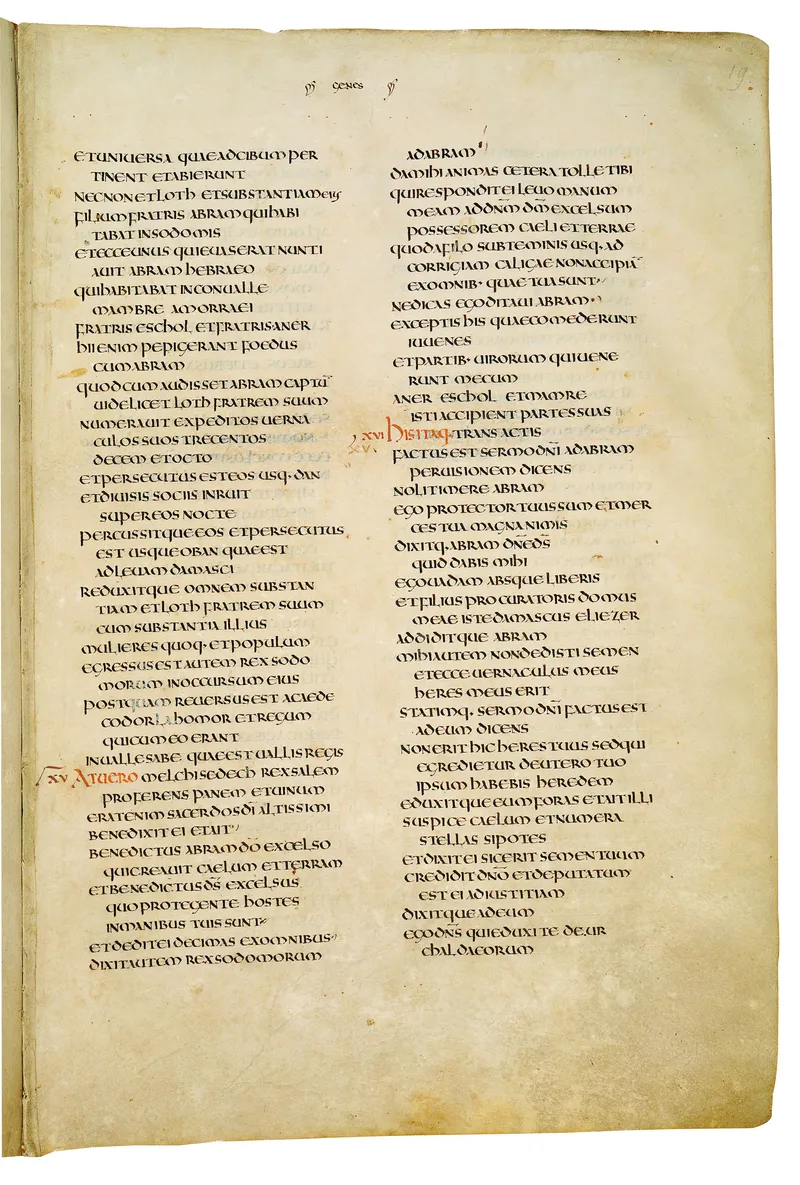 GENES
19
ETUNIUERSA QUAEADCIBUMPER
TINENT ETABIERUNT
NECNONETLOTH ETSUBSTANTIAMEIUS
FILIUMFRATRIS ABRAMQUIHABI
TABATINSODOMIS
ETECCEUNUS QUIEUASERATNUNTI
AUIT ABRAM HEBRAEO
QUIHABITABATINCONUALLE
MAMBRE AMORRAEI
FRATRIS ESCHOL ETFRATRISANER
HIIENIM PEPIGERANT FOEDUS
CUMABRAM
QUODCUMAUDISSETABRAM CAPTŪ
UIDELICET LOTH FRATREM SUUM
NUMERAUIT EXPEDITOS UERNA
CULOSSUOS TRECENTOS
DECEM ETOCTO
ETPERSECUTUS ESTEOS USQ·DAN
ETDIUISIS SOCIIS INRUIT
SUPEREOS NOCTE
PERCUSSITQUEEOS ETPERSECUTUS
EST USQUEOBAN QUAEEST
ADLEUAMDAMASCI
REDUXITQUE OMNEM SUBSTAN
TIAM ETLOTH FRATREM SUUM
CUM SUBSTANTIA ILLIUS
MULIERES QUOQ·ETPOPULUM
EGRESSUSESTAUTEM REXSODO
MORUM INOCCURSUM EIUS
POSTQUAM REUERSUSEST ACAEDE
CODORLAHOMOR ETREGUM
QUICUMEOERANT
INUALLESABE QUAEESTUALLISREGIS
XV ATUERO MELCHISEDECH REXSALEM
PROFERENS PANEM ETUINUM
ERATENIM SACERDOSDĪ ALTISSIMI
BENEDIXIT EI ETAIT
BENEDICTUS ABRAMDŌ EXCELSO
QUICREAUIT CAELUM ETTERRAM
ETBENEDICTUSDS̄ EXCELSUS
QUOPROTEGENTE HOSTES
INMANIBUS TUISSUNT
ETDEDITEIDECIMAS EXOMNIBUS
DIXITAUTEM REXSODOMORUM
ADABRAM
DAMIHIANIMAS CETERATOLLETIBI
QUIRESPONDITEI LEUO MANUM
MEAM ADDN̄M DM̄ EXCELSUM
POSSESSOREM CAELI ETTERRAE
QUODAFILO SUBTEMINIS USQ·AD
CORRIGIAM CALIGAE NONACCIPIĀ
EXOMNIB· QUAETUASUNT
NEDICAS EGODITAUI ABRAM
EXCEPTISHIS QUAECOMEDERUNT
IUUENES
ETPARTIB·UIRORUM QUIUENE
RUNT MECUM
ANER ESCHOL ETMAMRE
ISTIACCIPIENT PARTESSUAS
XVI HISITAQ·TRANSACTIS
XV·
FACTUSEST SERMODN̄I ADABRAM
PERUISIONEM DICENS
NOLITIMERE ABRAM
EGO PROTECTORTUUSSUM ETMER
CESTUA MAGNANIMIS
DIXITQ·ABRAM DN̄EDS̄
QUIDDABIS MIHI
EGOUADAM ABSQUELIBERIS
ETFILIUS PROCURATORIS DOMUS
MEAE ISTEDAMASCUS ELIEZER
ADDIDITQUE ABRAM
MIHIAUTEM NONDEDISTI SEMEN
ETECCE UERNACULUS MEUS
HERES MEUS ERIT
STATIMQ·SERMODN̄I FACTUSEST
ADEUM DICENS
NONERIT HICHERESTUUS SEDQUI
EGREDIETUR DEUTERO TUO
IPSUM HABEBIS HEREDEM
EDUXITQUEEUMFORAS ETAITILLI
SUSPICE CAELUM ETNUMERA
STELLAS SIPOTES
ETDIXITEI SICERIT SEMENTUUM
CREDIDITDN̄O ETDEPUTATUM
EST EI ADIUSTITIAM
DIXITQUEADEUM
EGODN̄S QUIEDUXITE DE·UR
CHALDAEORUM